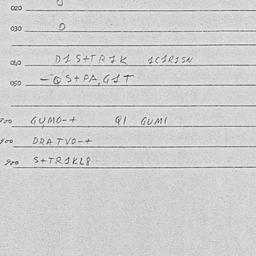 020 0
030 0
040 D1S+TR1K 1C1R1SN
050 -QS+PA,G1T
700 GUMO-+ Q1 GUM1
900 DRATVO-+
900 S+TR1KL8